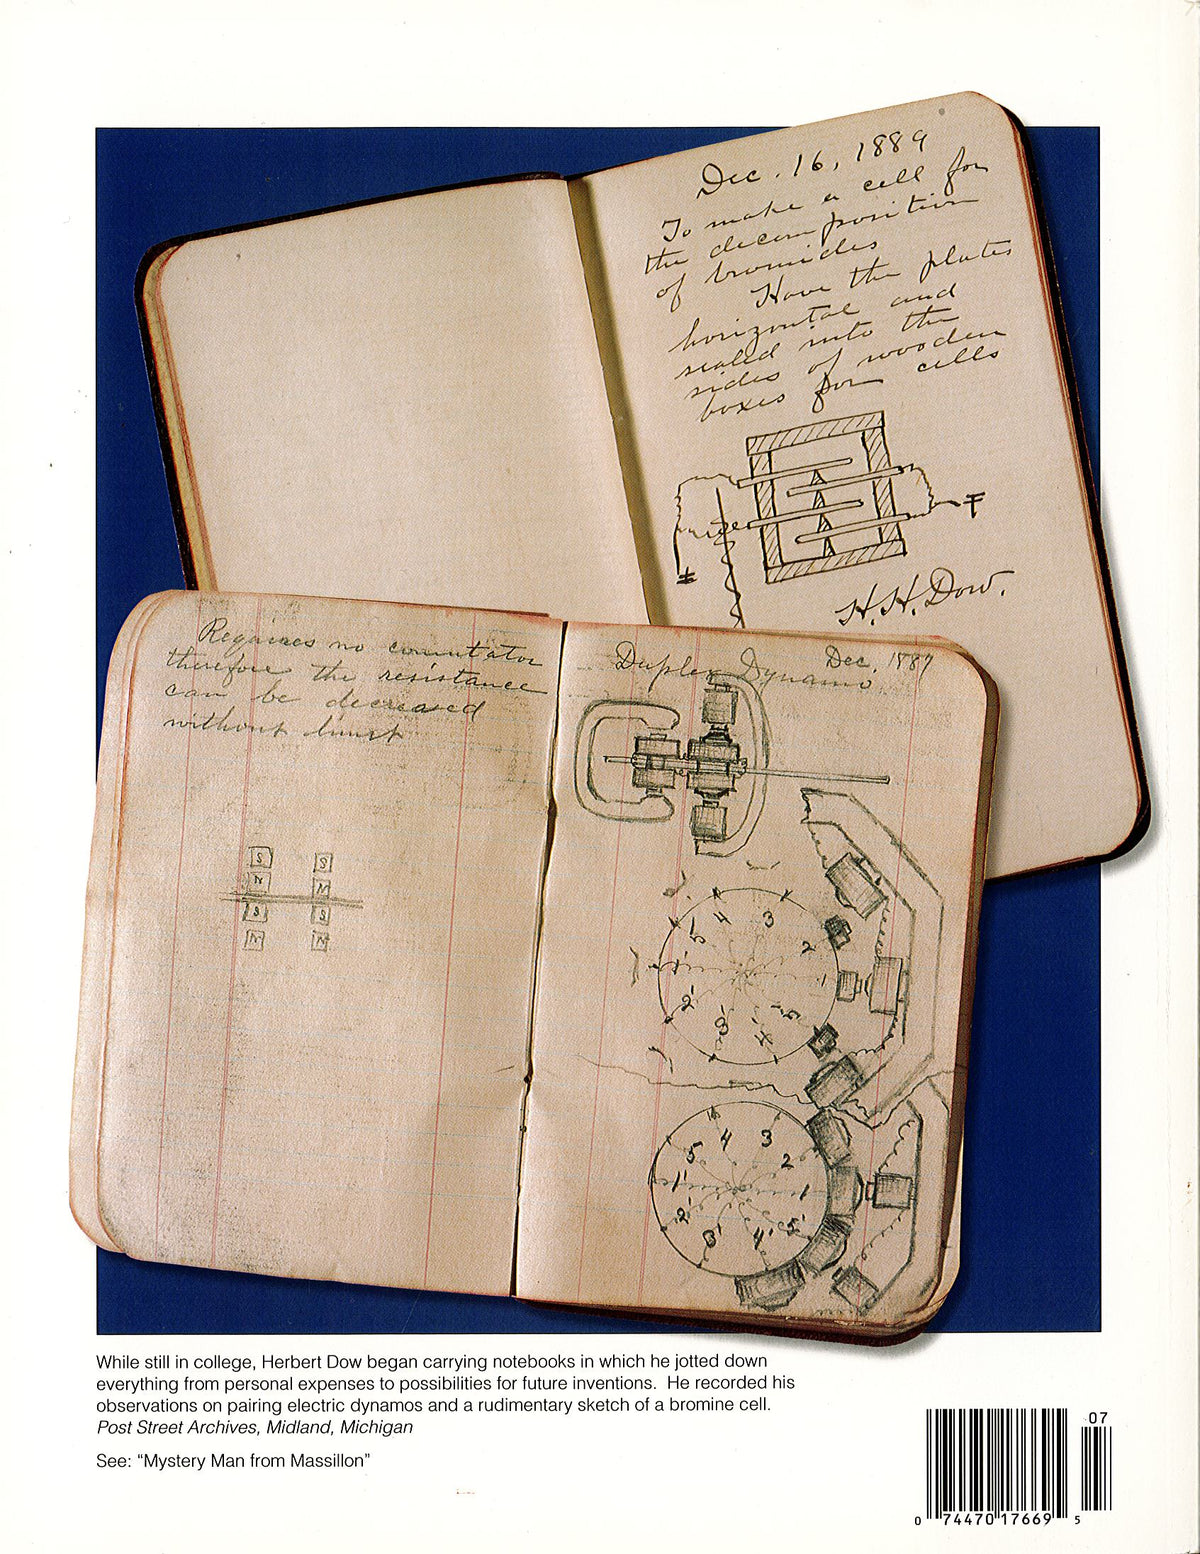 Dec. 16, 1889
To make a cell for
the decomposition
of bromides
Have the plates
horizontal and
sealed into the
sides of wooden
boxes for cells
H. H. Dow.
Requires no comutator
therefore the resistance
can be decreased
without limit
S S
N N
S S
N N
Duplex Dynamo Dec. 1887
5 4 3 2 1
1' 2' 3' 4' 5'
5 4 3 2 1
1' 2' 3' 4' 5'
While still in college, Herbert Dow began carrying notebooks in which he jotted down
everything from personal expenses to possibilities for future inventions. He recorded his
observations on pairing electric dynamos and a rudimentary sketch of a bromine cell.
Post Street Archives, Midland, Michigan
See: “Mystery Man from Massillon”
07
0 74470 17669 5